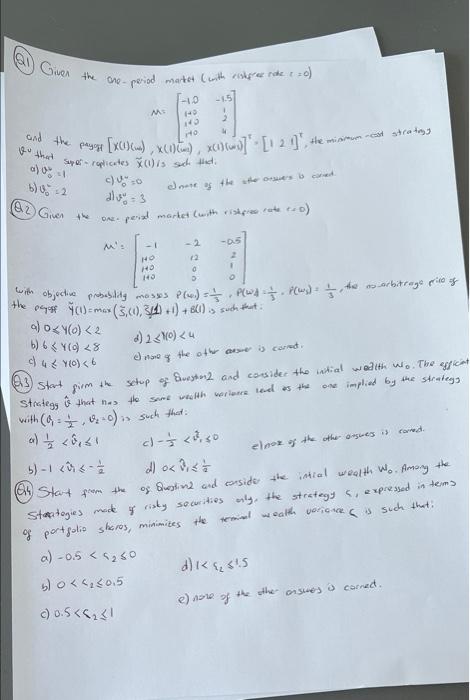 Q1 Given the one-period market (with riskfree rate r=0)
M= [ -1.0 -1.5
1+0 1
1+0 2
1+0 4 ]
and the payoff [X(1)(ω₁), X(1)(ω₂), X(1)(ω₃)]ᵀ = [1 2 1]ᵀ, the minimum-cost strategy
that super-replicates X(1) is such that:
a) ϑ₀ = 1 c) ϑ₀ = 0 e) none of the other answers is correct
b) ϑ₀ = 2 d) ϑ₀ = 3
Q2 Given the one-period market (with riskfree rate r=0)
M' = [ -1 -2 -0.5
1+0 12 2
1+0 0 1
1+0 0 0 ]
with objective probability masses P(ω₁) = 1/3, P(ω₂) = 1/3, P(ω₃) = 1/3, the no-arbitrage price of
the payoff Y(1) = max( (1), +1) + B(1) is such that:
a) 0 ≤ Y(0) < 2 d) 2 ≤ Y(0) < 4
b) 6 ≤ Y(0) < 8 e) none of the other answer is correct.
c) 4 ≤ Y(0) < 6
Q3 Start from the setup of Question 2 and consider the initial wealth W₀. The efficient
strategy ϑ̂ that has the same wealth variance level as the one implied by the strategy
with (ϑ₁ = 1/2, ϑ₂ = 0) is such that:
a) 1/2 < ϑ̂₁ ≤ 1 c) -1/2 < ϑ̂₁ ≤ 0 e) none of the other answers is correct.
b) -1 < ϑ̂₁ ≤ -1/2 d) 0 < ϑ̂₁ ≤ 1/2
Q4 Start from the of Question 2 and consider the intial wealth W₀. Among the
Strategies made of risky securities only, the strategy ς, expressed in terms
of portfolio shares, minimizes the terminal wealth variance ς is such that:
a) -0.5 < ς₂ ≤ 0 d) 1 < ς₂ ≤ 1.5
b) 0 < ς₂ ≤ 0.5
e) none of the other answers is correct.
c) 0.5 < ς₂ ≤ 1